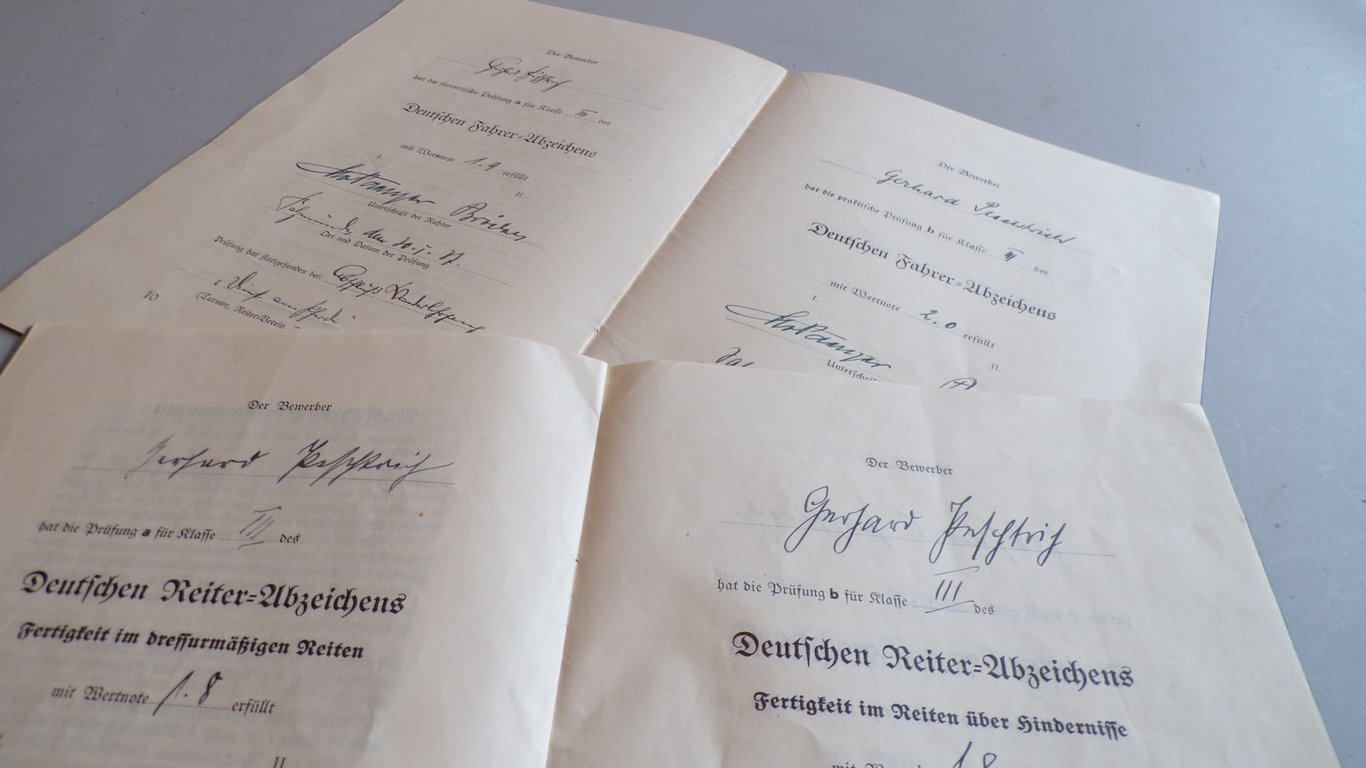 Der Bewerber
hat die theoretische Prüfung a für Klasse III des
Deutschen Fahrer=Abzeichens
mit Wertnote 1.9 erfüllt
I. II.
Unterschrift der Richter
den
Ort und Datum der Prüfung
Prüfung hat stattgefunden bei:
(Turnier, Reiter=Verein
10
Der Bewerber
Gerhard
hat die praktische Prüfung b für Klasse III des
Deutschen Fahrer=Abzeichens
mit Wertnote 2.0 erfüllt
I. II.
Der Bewerber
Gerhard Peschtrich
hat die Prüfung a für Klasse III des
Deutschen Reiter=Abzeichens
Fertigkeit im dressurmäßigen Reiten
mit Wertnote 1.8 erfüllt
II
Der Bewerber
Gerhard Peschtrich
hat die Prüfung b für Klasse III des
Deutschen Reiter=Abzeichens
Fertigkeit im Reiten über Hindernisse
mit 1.8